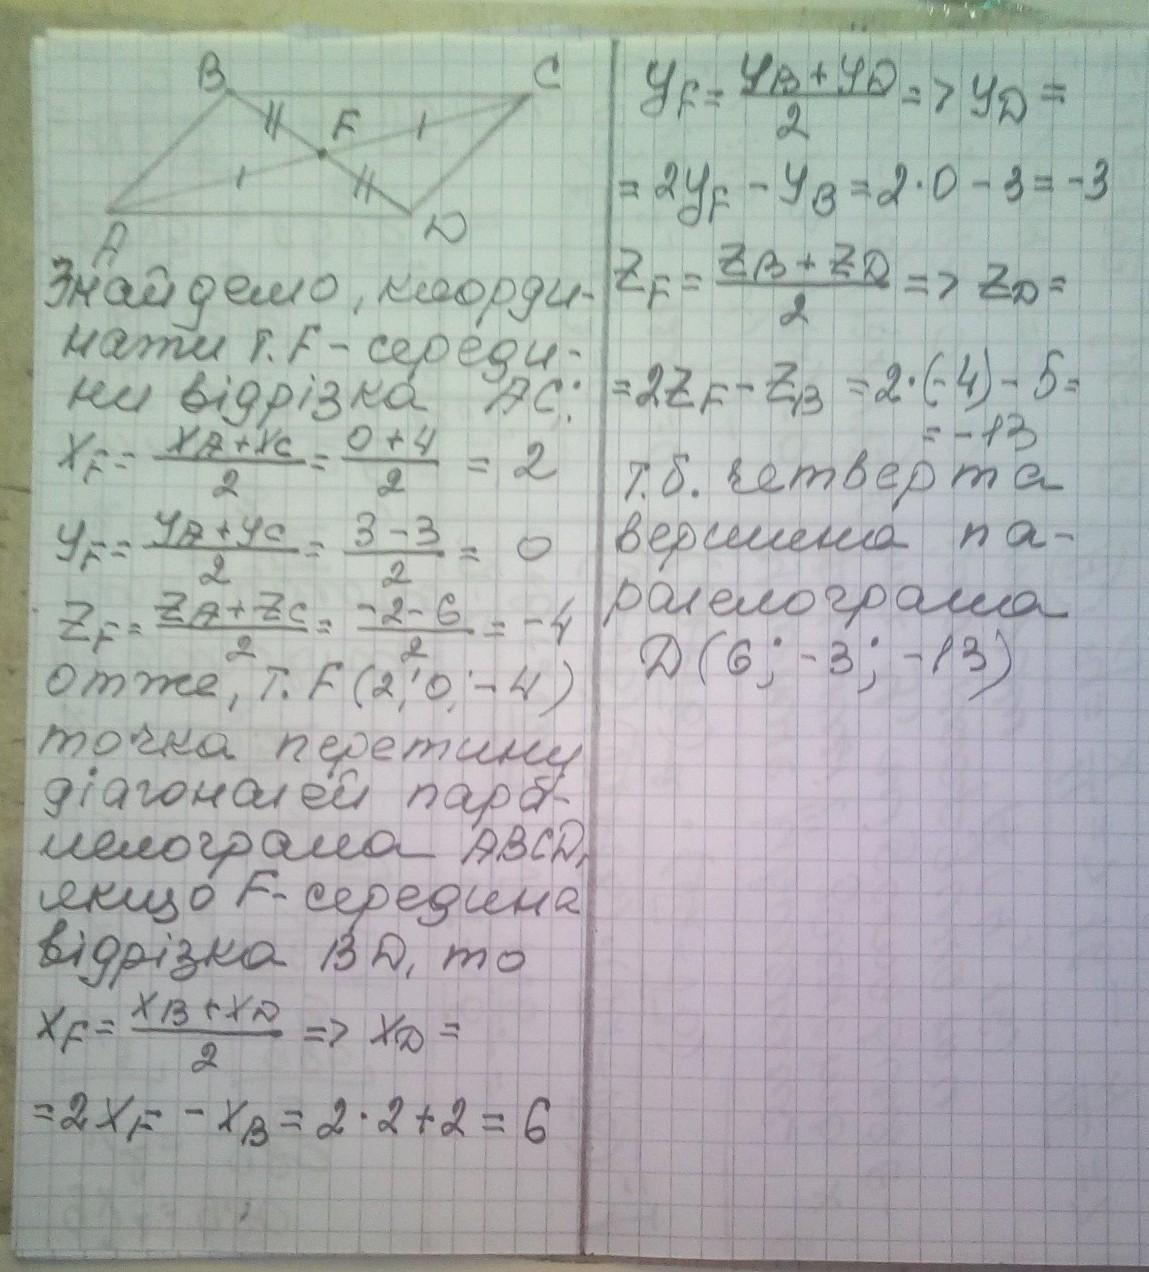 B
C
F
A
D
Знайдемо, коорди-
нати т. F - середи-
ни відрізка AC:
x_F = (x_A + x_C)/2 = (0 + 4)/2 = 2
y_F = (y_A + y_C)/2 = (3 - 3)/2 = 0
z_F = (z_A + z_C)/2 = (-2 - 6)/2 = -4
Отже, т. F (2; 0; -4)
точка перетину
діагоналей пара-
лелограма ABCD,
якщо F - середина
відрізка BD, то
x_F = (x_B + x_D)/2 => x_D =
= 2x_F - x_B = 2·2+2 = 6
y_F = (y_B + y_D)/2 => y_D =
= 2y_F - y_B = 2·0 - 3 = -3
z_F = (z_B + z_D)/2 => z_D =
= 2z_F - z_B = 2·(-4) - 5 =
= -13
т.б. четверта
вершина па-
ралелограма
D (6; -3; -13)